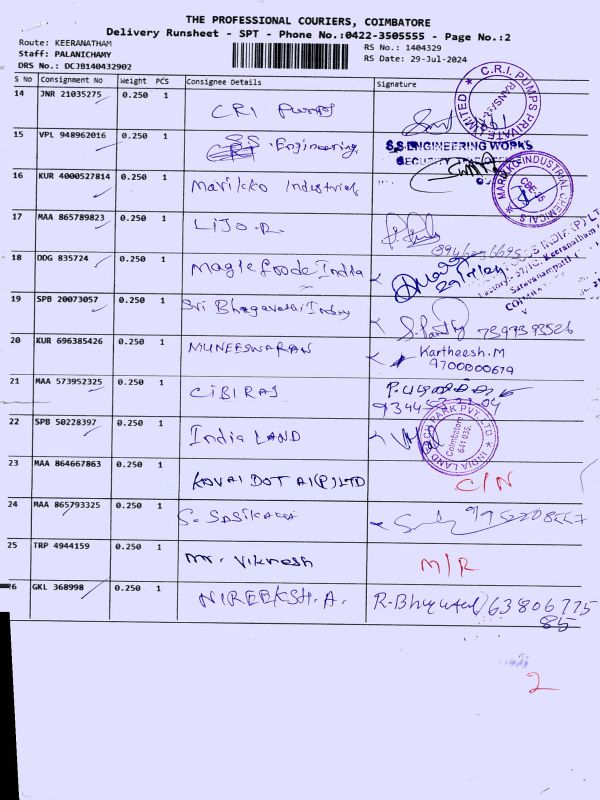 THE PROFESSIONAL COURIERS, COIMBATORE
Delivery Runsheet - SPT - Phone No.:0422-3505555 - Page No.:2
Route: KEERANATHAM
Staff: PALANICHAMY
DRS No.: DCJB140432902
RS No.: 1404329
RS Date: 29-Jul-2024
S No Consignment No Weight PCS Consignee Details Signature
14 JNR 21035275 0.250 1 CRI Pumps
C.R.I. PUMPS PRIVATE LIMITED
15 VPL 948962016 0.250 1 S.S. Engineering
S.S.ENGINEERING WORKS
SECURITY
16 KUR 4000527814 0.250 1 Marikko Industries
INDUSTRIAL CHEMICALS
17 MAA 865789823 0.250 1 LIJO.R
18 DDG 835724 0.250 1 Magle foode India
Keeranatham
Saravanampatti
19 SPB 20073057 0.250 1 Sri Bhagavathi
7397393526
20 KUR 696385426 0.250 1 MUNEESWARAN Kartheesh.M
9700000679
21 MAA 573952325 0.250 1 CIBIRAJ
22 SPB 50228397 0.250 1 India LAND
INDIA LAND TECH PARK PVT. LTD
Coimbatore
641 035.
23 MAA 864667863 0.250 1 KOVAI DOT AI(P)LTD C/N
24 MAA 865793325 0.250 1 S. Sasikala
25 TRP 4944159 0.250 1 Mr. Viknesh M/R
26 GKL 368998 0.250 1 NIREEKSH.A. 63806775
85
2